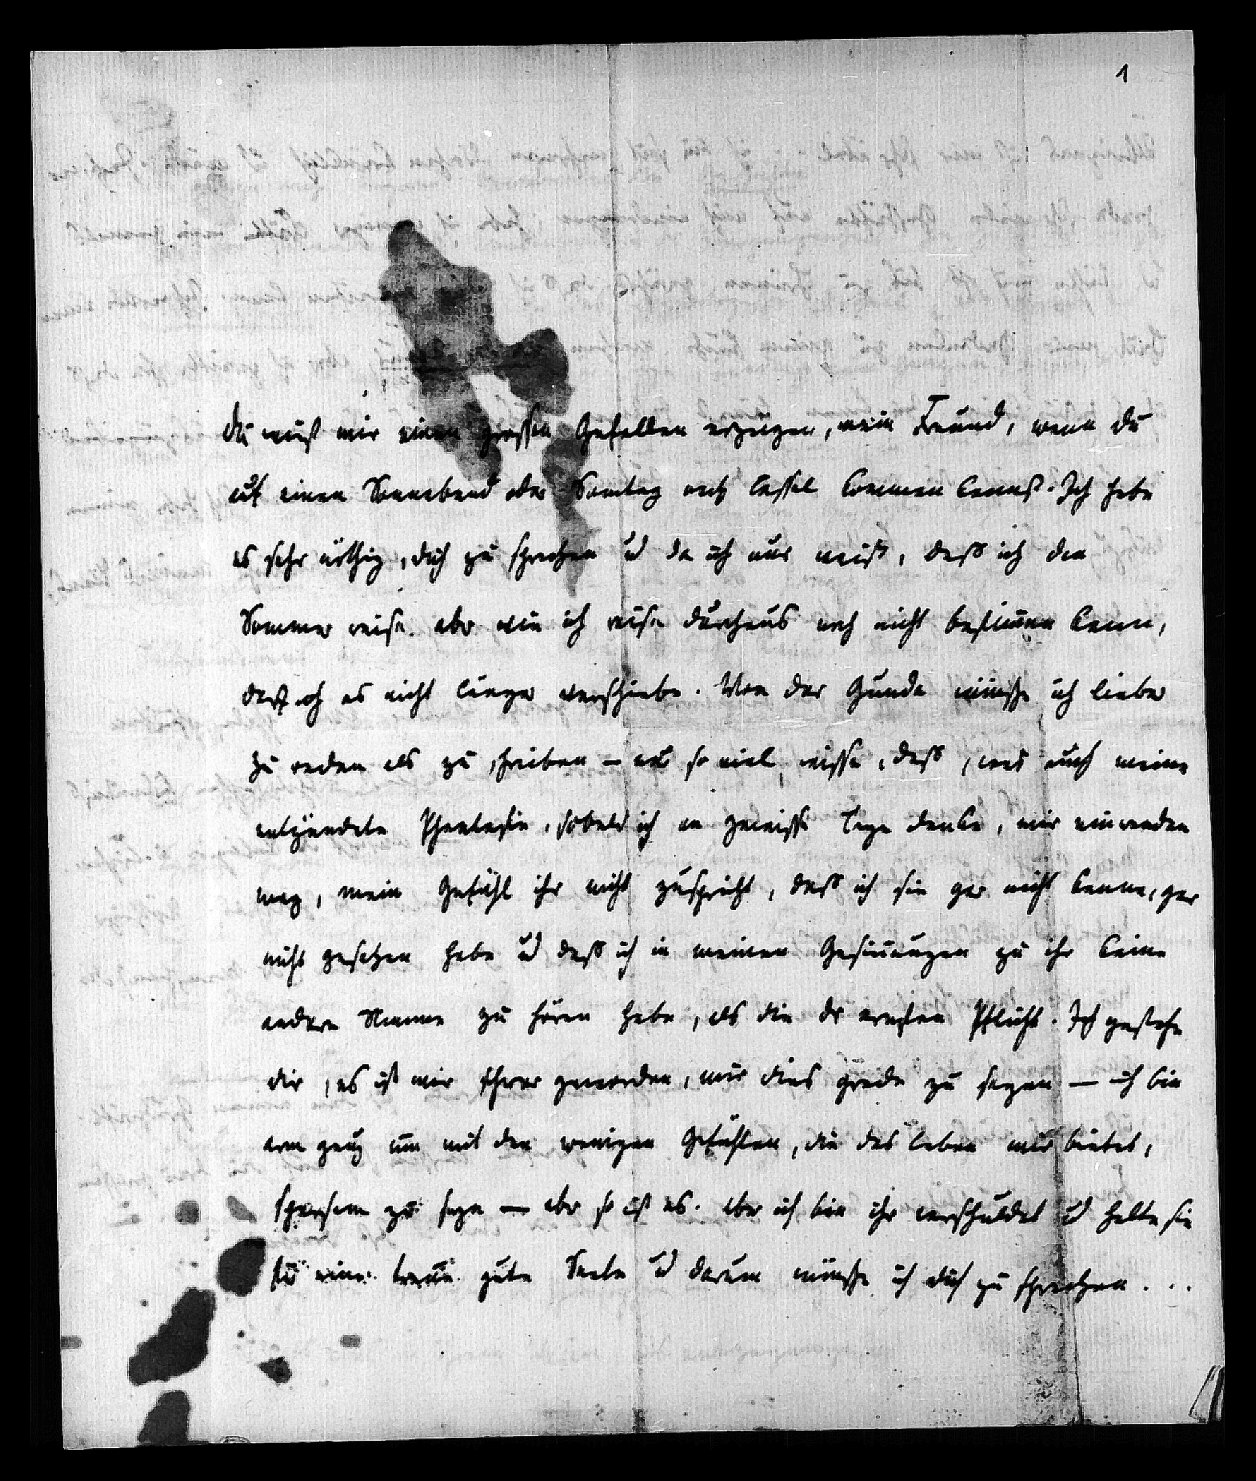 1
du must mir einen grossen Gefallen erzeigen, mein Freund, wenn du
auf einen Sonnabend oder Sonntag nach Cassel kommen kannst. Ich habe
es sehr nöthig, dich zu sprechen ud da ich nur weiß, daß ich den
Sommer reise. aber wie ich reise durchaus noch nicht bestimmen kann,
daß ich es nicht länger verschiebe. Von der Gunda wünsche ich lieber
zu reden als zu schreiben – nur so viel wisse, daß, was auch meine
entzündete Phantasie, sobald ich an gewisse Tage denke, mir einwenden
mag, mein Gefühl ihr nicht zuspricht, daß ich sie gar nicht kenne, gar
nicht gesehen habe ud daß ich in meinen Gesinnungen zu ihr keine
andere Stimme zu hören habe, als die der ernsten Pflicht. Ich gestehe
dir, es ist mir schwer geworden, mir dies grade zu sagen — ich bin
arm genug um mit den wenigen Gefühlen, die das Leben mir bietet,
sparsam zu seyn — aber so ist es. aber ich bin ihr verschuldet ud halte sie
für eine treue gute Seele ud darum wünsche ich dich zu sprechen . . .